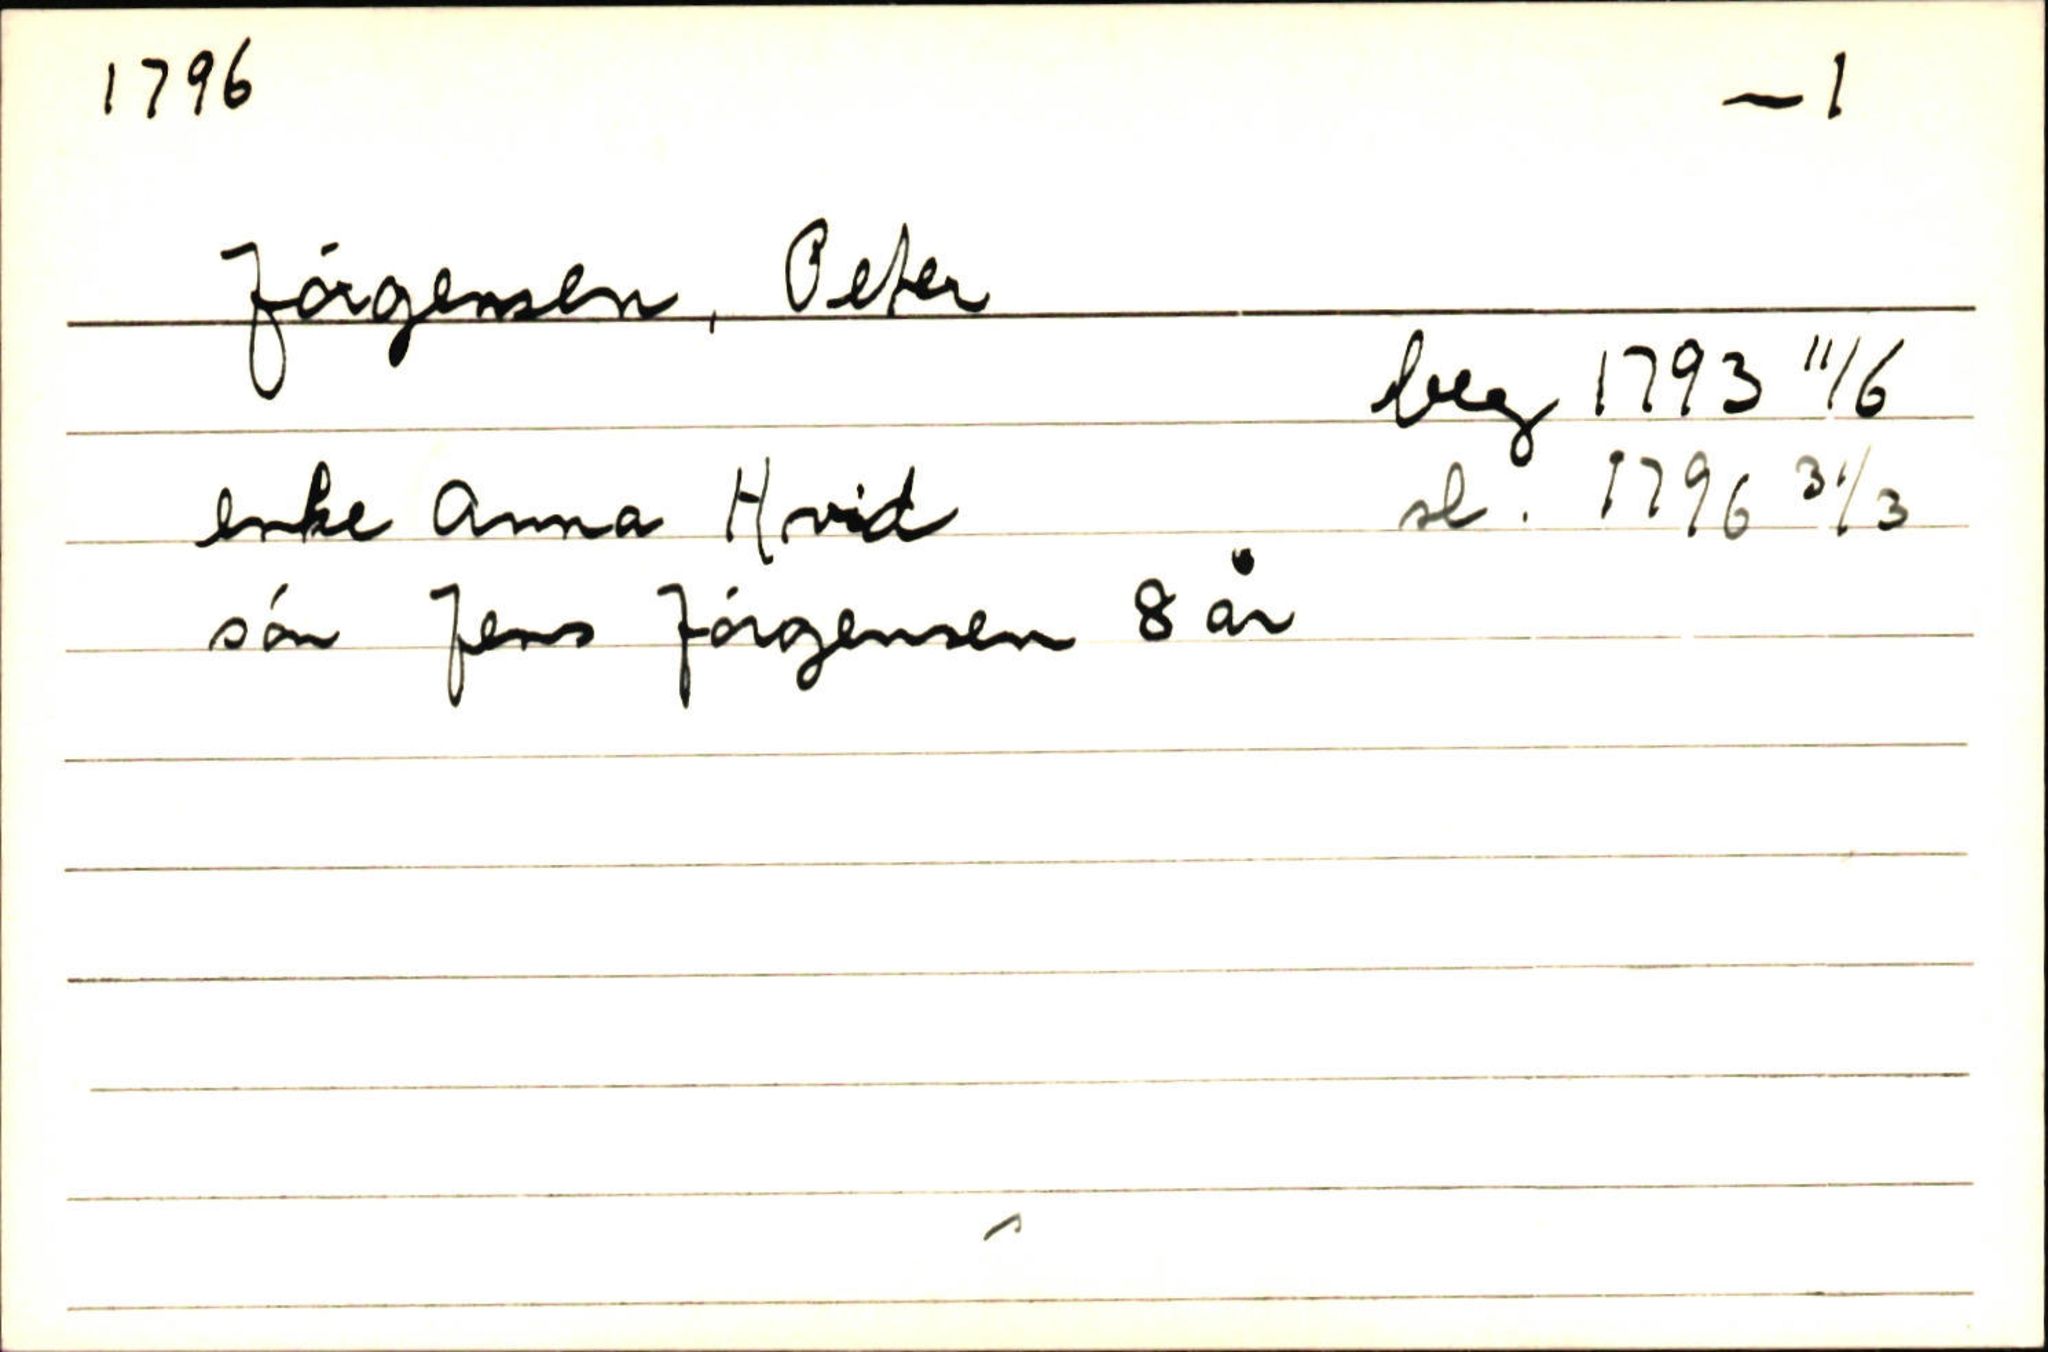 1796 ~1
Jörgensen, Peter
beg 1793 11/6
enke Anna Hvid sl. 1796 31/3
són Jens Jórgensen 8 år